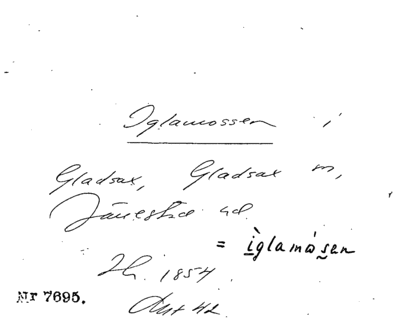 Iglamossen i
Gladsax, Gladsax sn,
Järrestad hd.
= ìglamåsen
Jh. 1854.
Nr 7695.